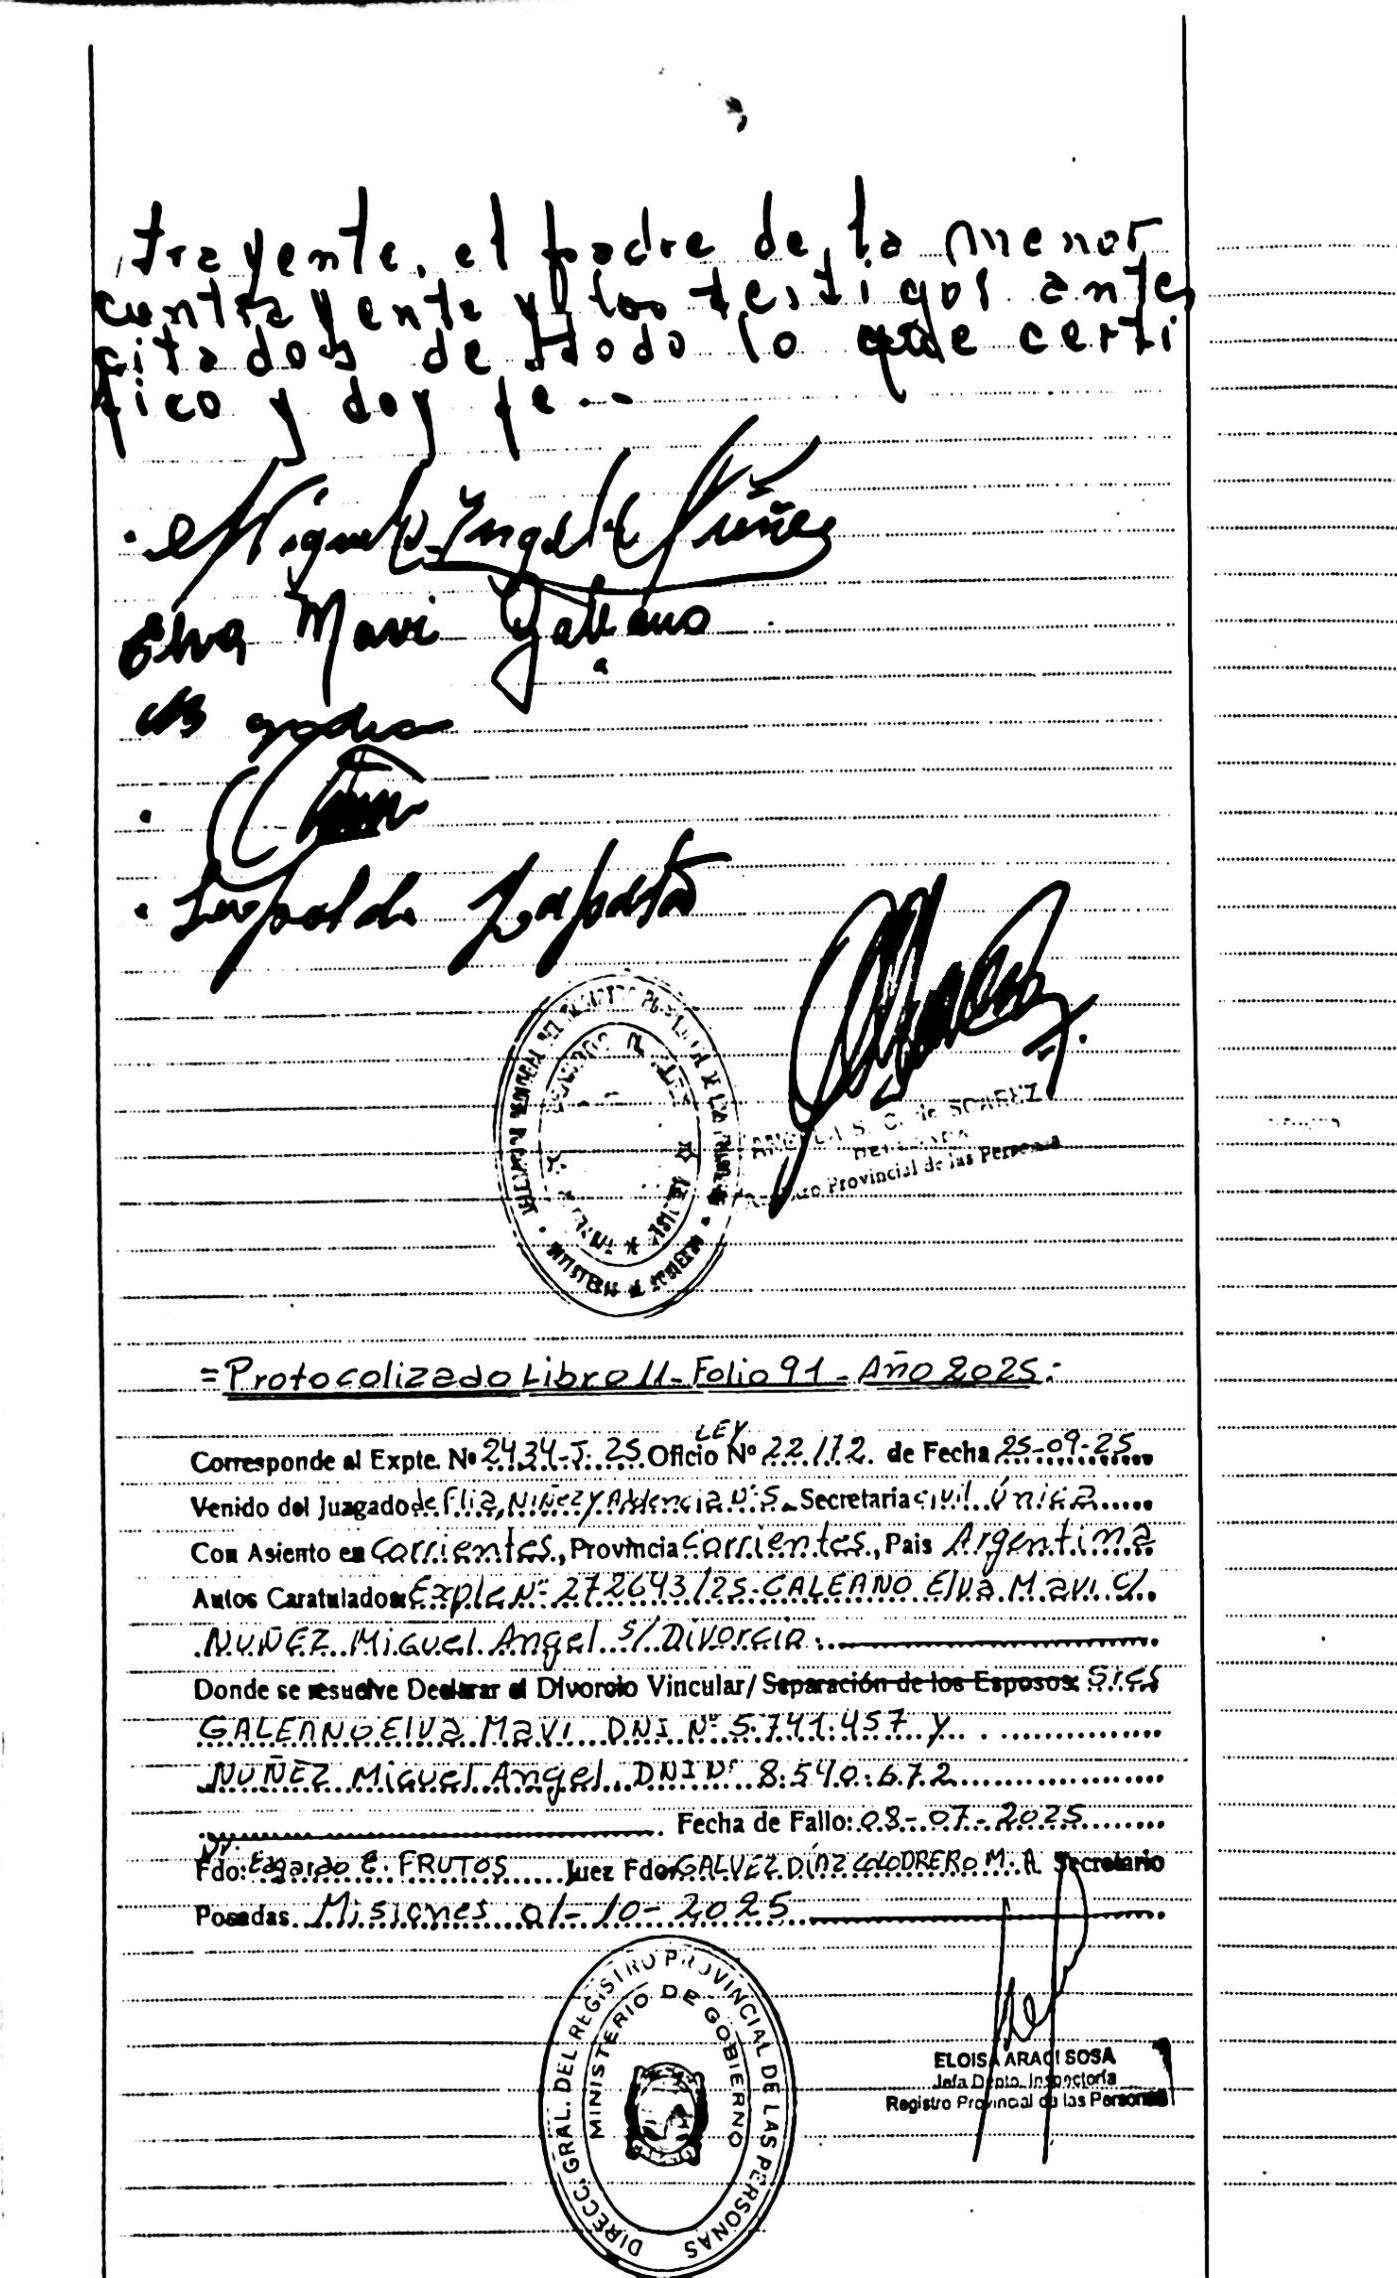 trayente, el padre de la menor
contrayente y los testigos antes
citados de todo lo que certi
fico y doy fe.--
Miguel Angel Núñez
Elva Mavi Galeano
Leopoldo Zapata
de SUAREZ
Registro Provincial de las Personas
=Protocolizado Libro 11-Folio 91-Año 2025:
LEY
Corresponde al Expte. Nº 2434-J-25 Oficio Nº 22.172. de Fecha 25-09-25
Venido del Juzgado de Flia, Niñez y Adolencia Nº 5. Secretaria civil Única
Con Asiento en Corrientes, Provincia Corrientes, Pais Argentina
Autos Caratulados: Expte Nº 272643/25-GALEANO Elva Mavi C/.
NUÑEZ Miguel Angel S/Divorcio.
Donde se resuelve Declarar el Divorcio Vincular/ Separación de los Esposos: Sres
GALEANO Elva Mavi DNI Nº 5.741.457 y
NUÑEZ Miguel Angel DNI Nº 8.540.672
Fecha de Fallo: 08-07-2025
Dr.
Fdo: Edgardo E. FRUTOS Juez Fdo: GALVEZ DÍAZ COLODRERO M. A. Secretario
Posadas Misiones 01-10-2025
DIRECC. GRAL. DEL REGISTRO PROVINCIAL DE LAS PERSONAS
MINISTERIO DE GOBIERNO
ELOISA ARACI SOSA
Jefa Dpto. Inspectoría
Registro Provincial de las Personas